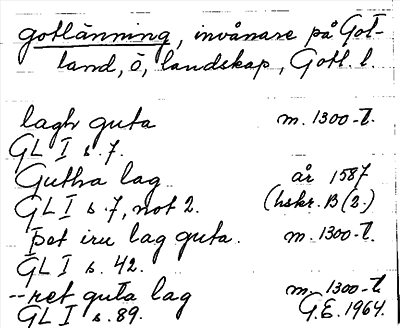 gotlänning, invånare på Got-
land, ö, landskap, Gotl. l.
lagh guta m. 1300-t.
GL I s. 7.
Gutha lag år 1587
GL I s. 7, not 2. (hskr. B (2.)
Þet iru lag guta. m. 1300-t.
GL I s. 42.
--ret guta lag m. 1300-t.
GL I s. 89. G.E. 1964.